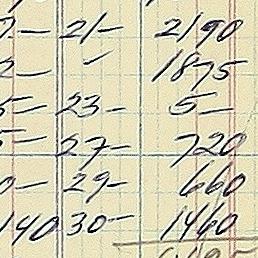 7- 21- 2190
2- ✓ 1875
5- 23- 5-
5- 27- 720
0- 29- 660
140 30- 1460